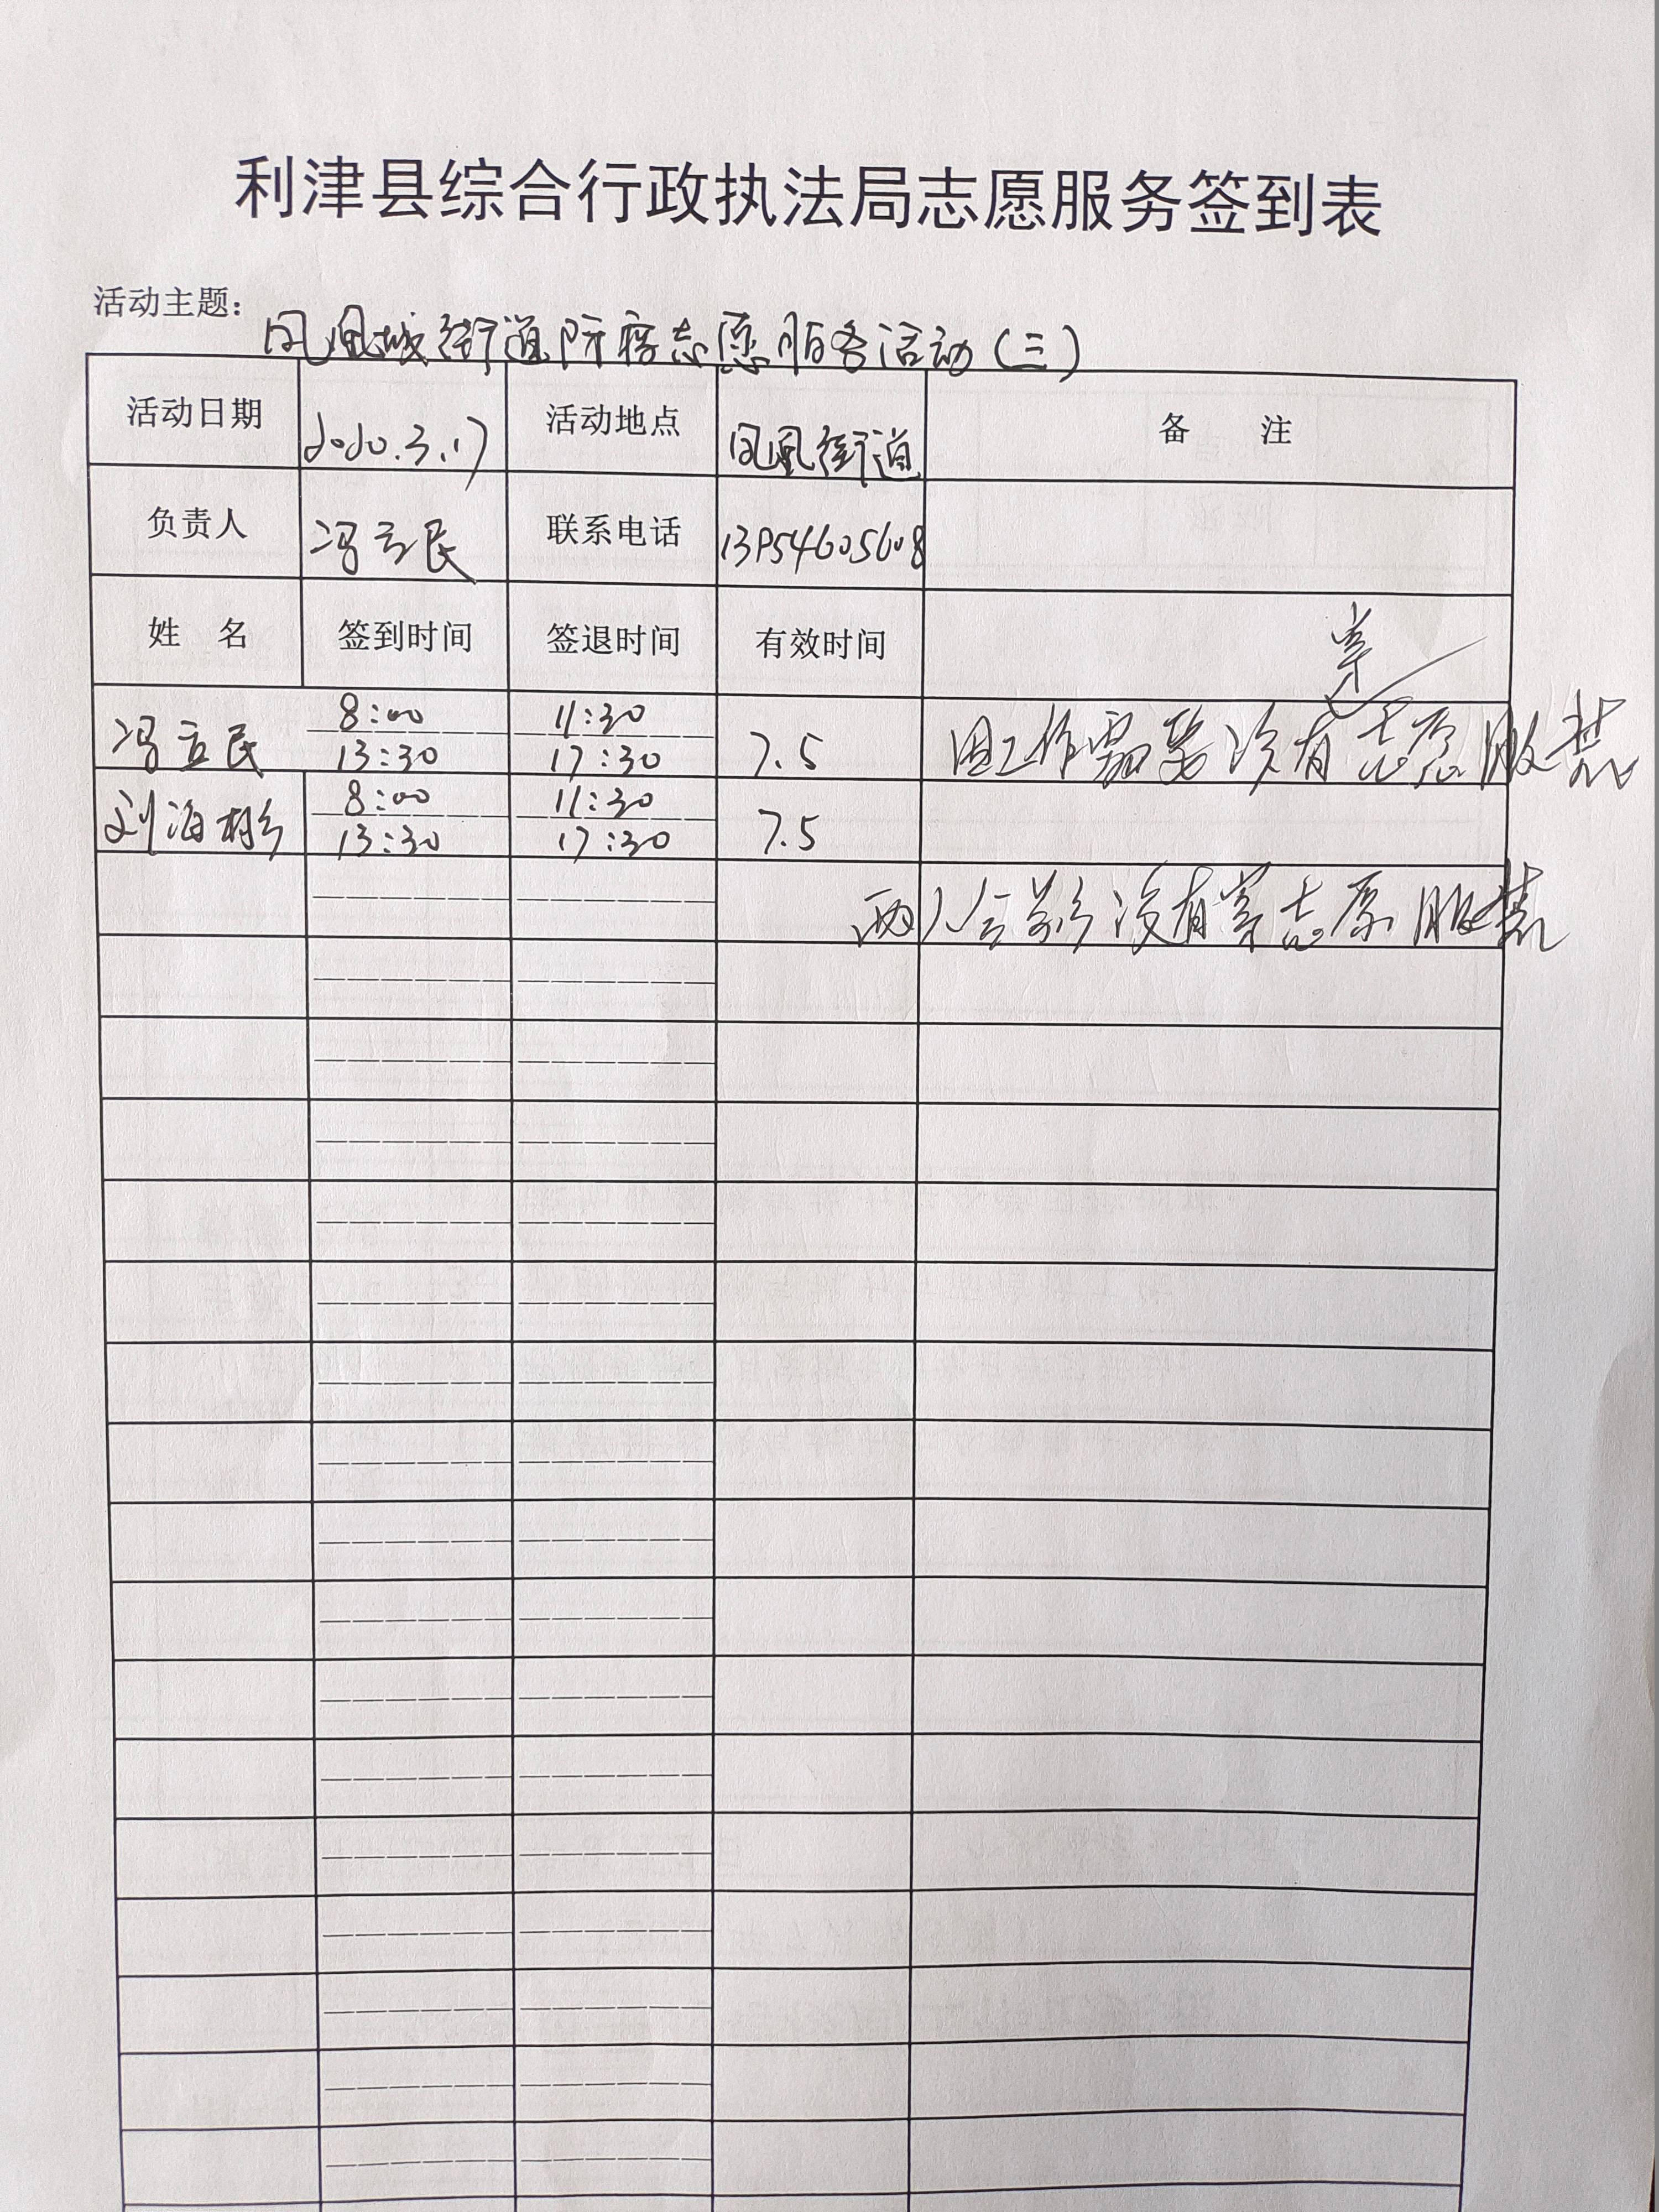 利津县综合行政执法局志愿服务签到表
活动主题：
凤凰城街道防疫志愿服务活动(三)
活动日期 2020.3.17 活动地点 凤凰街道 备 注
负责人 冯立民 联系电话 13954605608
姓 名 签到时间 签退时间 有效时间
穿
冯立民 8:00 11:30 7.5 因工作需要没有志愿服装
13:30 17:30
刘海彬 8:00 11:30 7.5
13:30 17:30
两人合影没有穿志愿服装